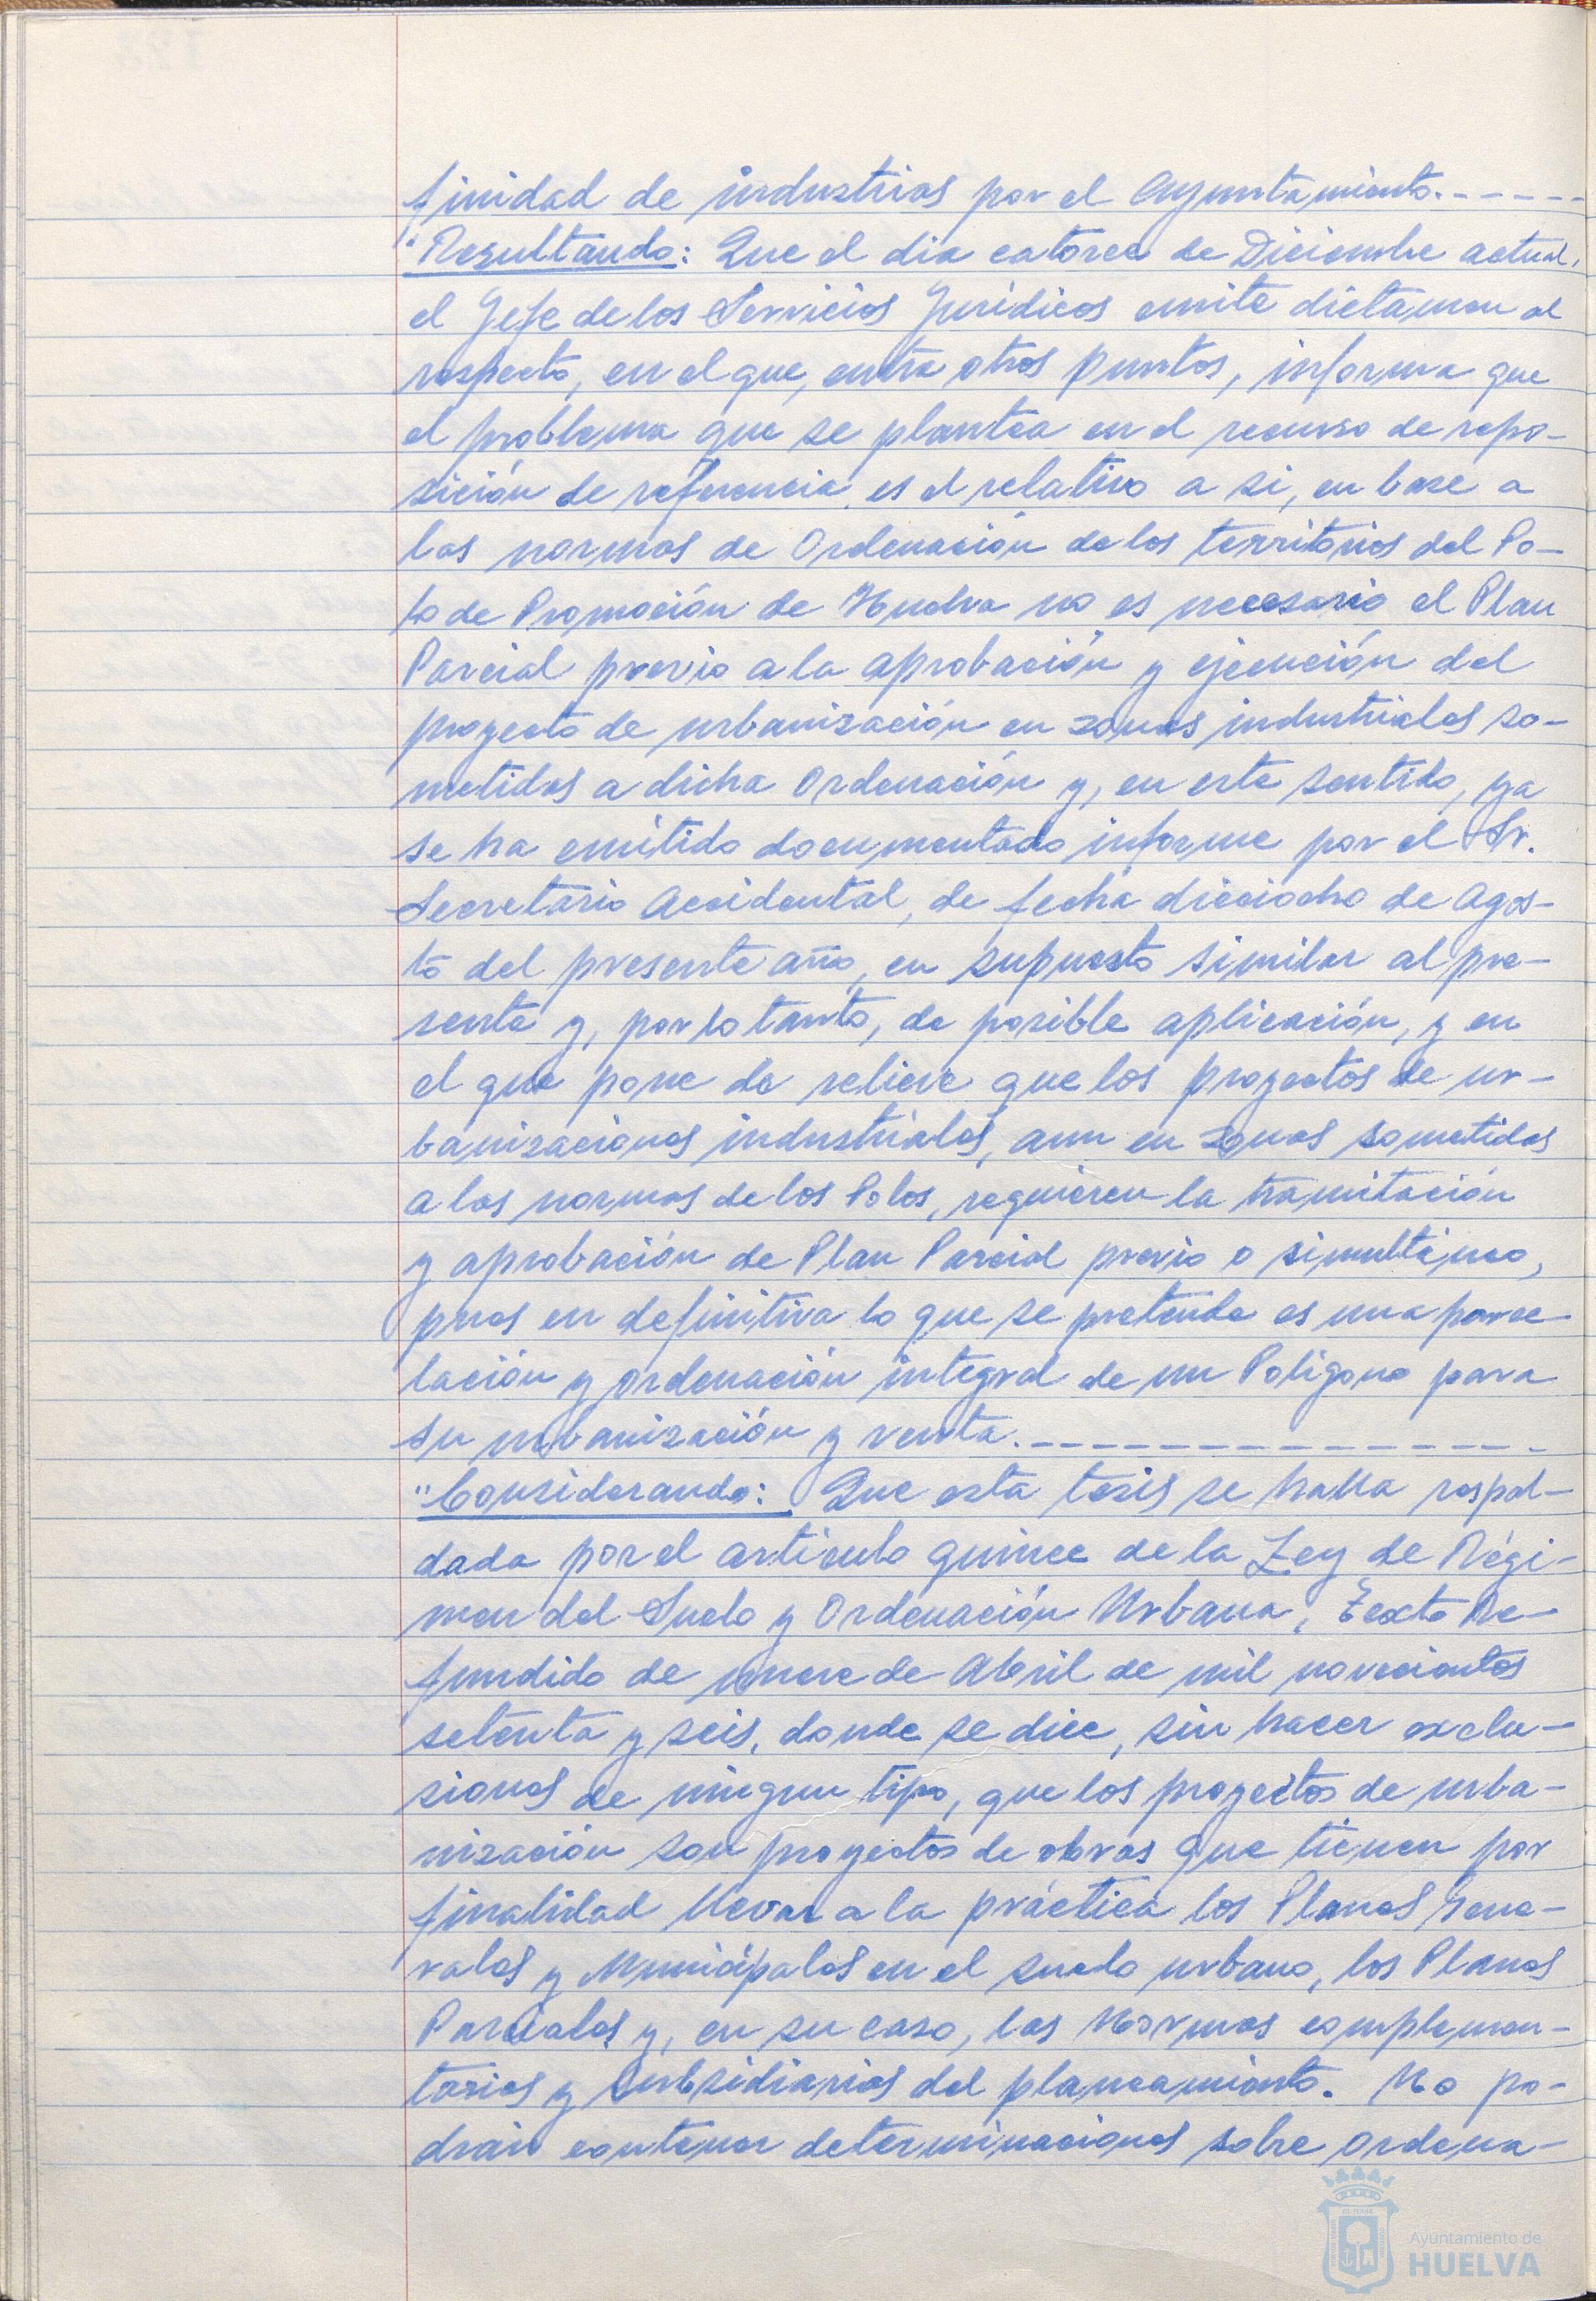 finidad de industrias por el Ayuntamiento.------
"Resultando: Que el dia catorce de Diciembre actual,
el Jefe de los Servicios Jurídicos emite dictamen al
respecto, en el que, entre otros puntos, informa que
el problema que se plantea en el recurso de repo-
sición de referencia, es el relativo a si, en base a
las normas de Ordenación de los territorios del Po-
lo de Promoción de Huelva no es necesario el Plan
Parcial previo a la aprobación y ejecución del
proyecto de urbanización en zonas industriales so-
metidas a dicha Ordenación y, en este sentido, ya
se ha emitido documentado informe por el Sr.
Secretario Accidental, de fecha dieciocho de Agos-
to del presente año, en supuesto similar al pre-
sente y, por lo tanto, de posible aplicación, y en
el que pone de relieve que los proyectos de ur-
banizaciones industriales, aun en zonas sometidas
a las normas de los Polos, requieren la tramitación
y aprobación de Plan Parcial previo o simultáneo,
pues en definitiva lo que se pretende es una parce-
lación y ordenación integral de un Polígono para
su urbanización y venta.---------------
"Considerando: Que esta tesis se halla respal-
dada por el artículo quince de la Ley de Régi-
men del Suelo y Ordenación Urbana, Texto Re-
fundido de nueve de Abril de mil novecientos
setenta y seis, donde se dice, sin hacer exclu-
siones de ningun tipo, que los proyectos de urba-
nización son proyectos de obras que tienen por
finalidad llevar a la práctica los Planes Gene-
rales y Municipales en el suelo urbano, los Planes
Parciales y, en su caso, las Normas complemen-
tarias y Subsidiarias del planeamiento. No po-
drán contener determinaciones sobre ordena-
Ayuntamiento de
HUELVA